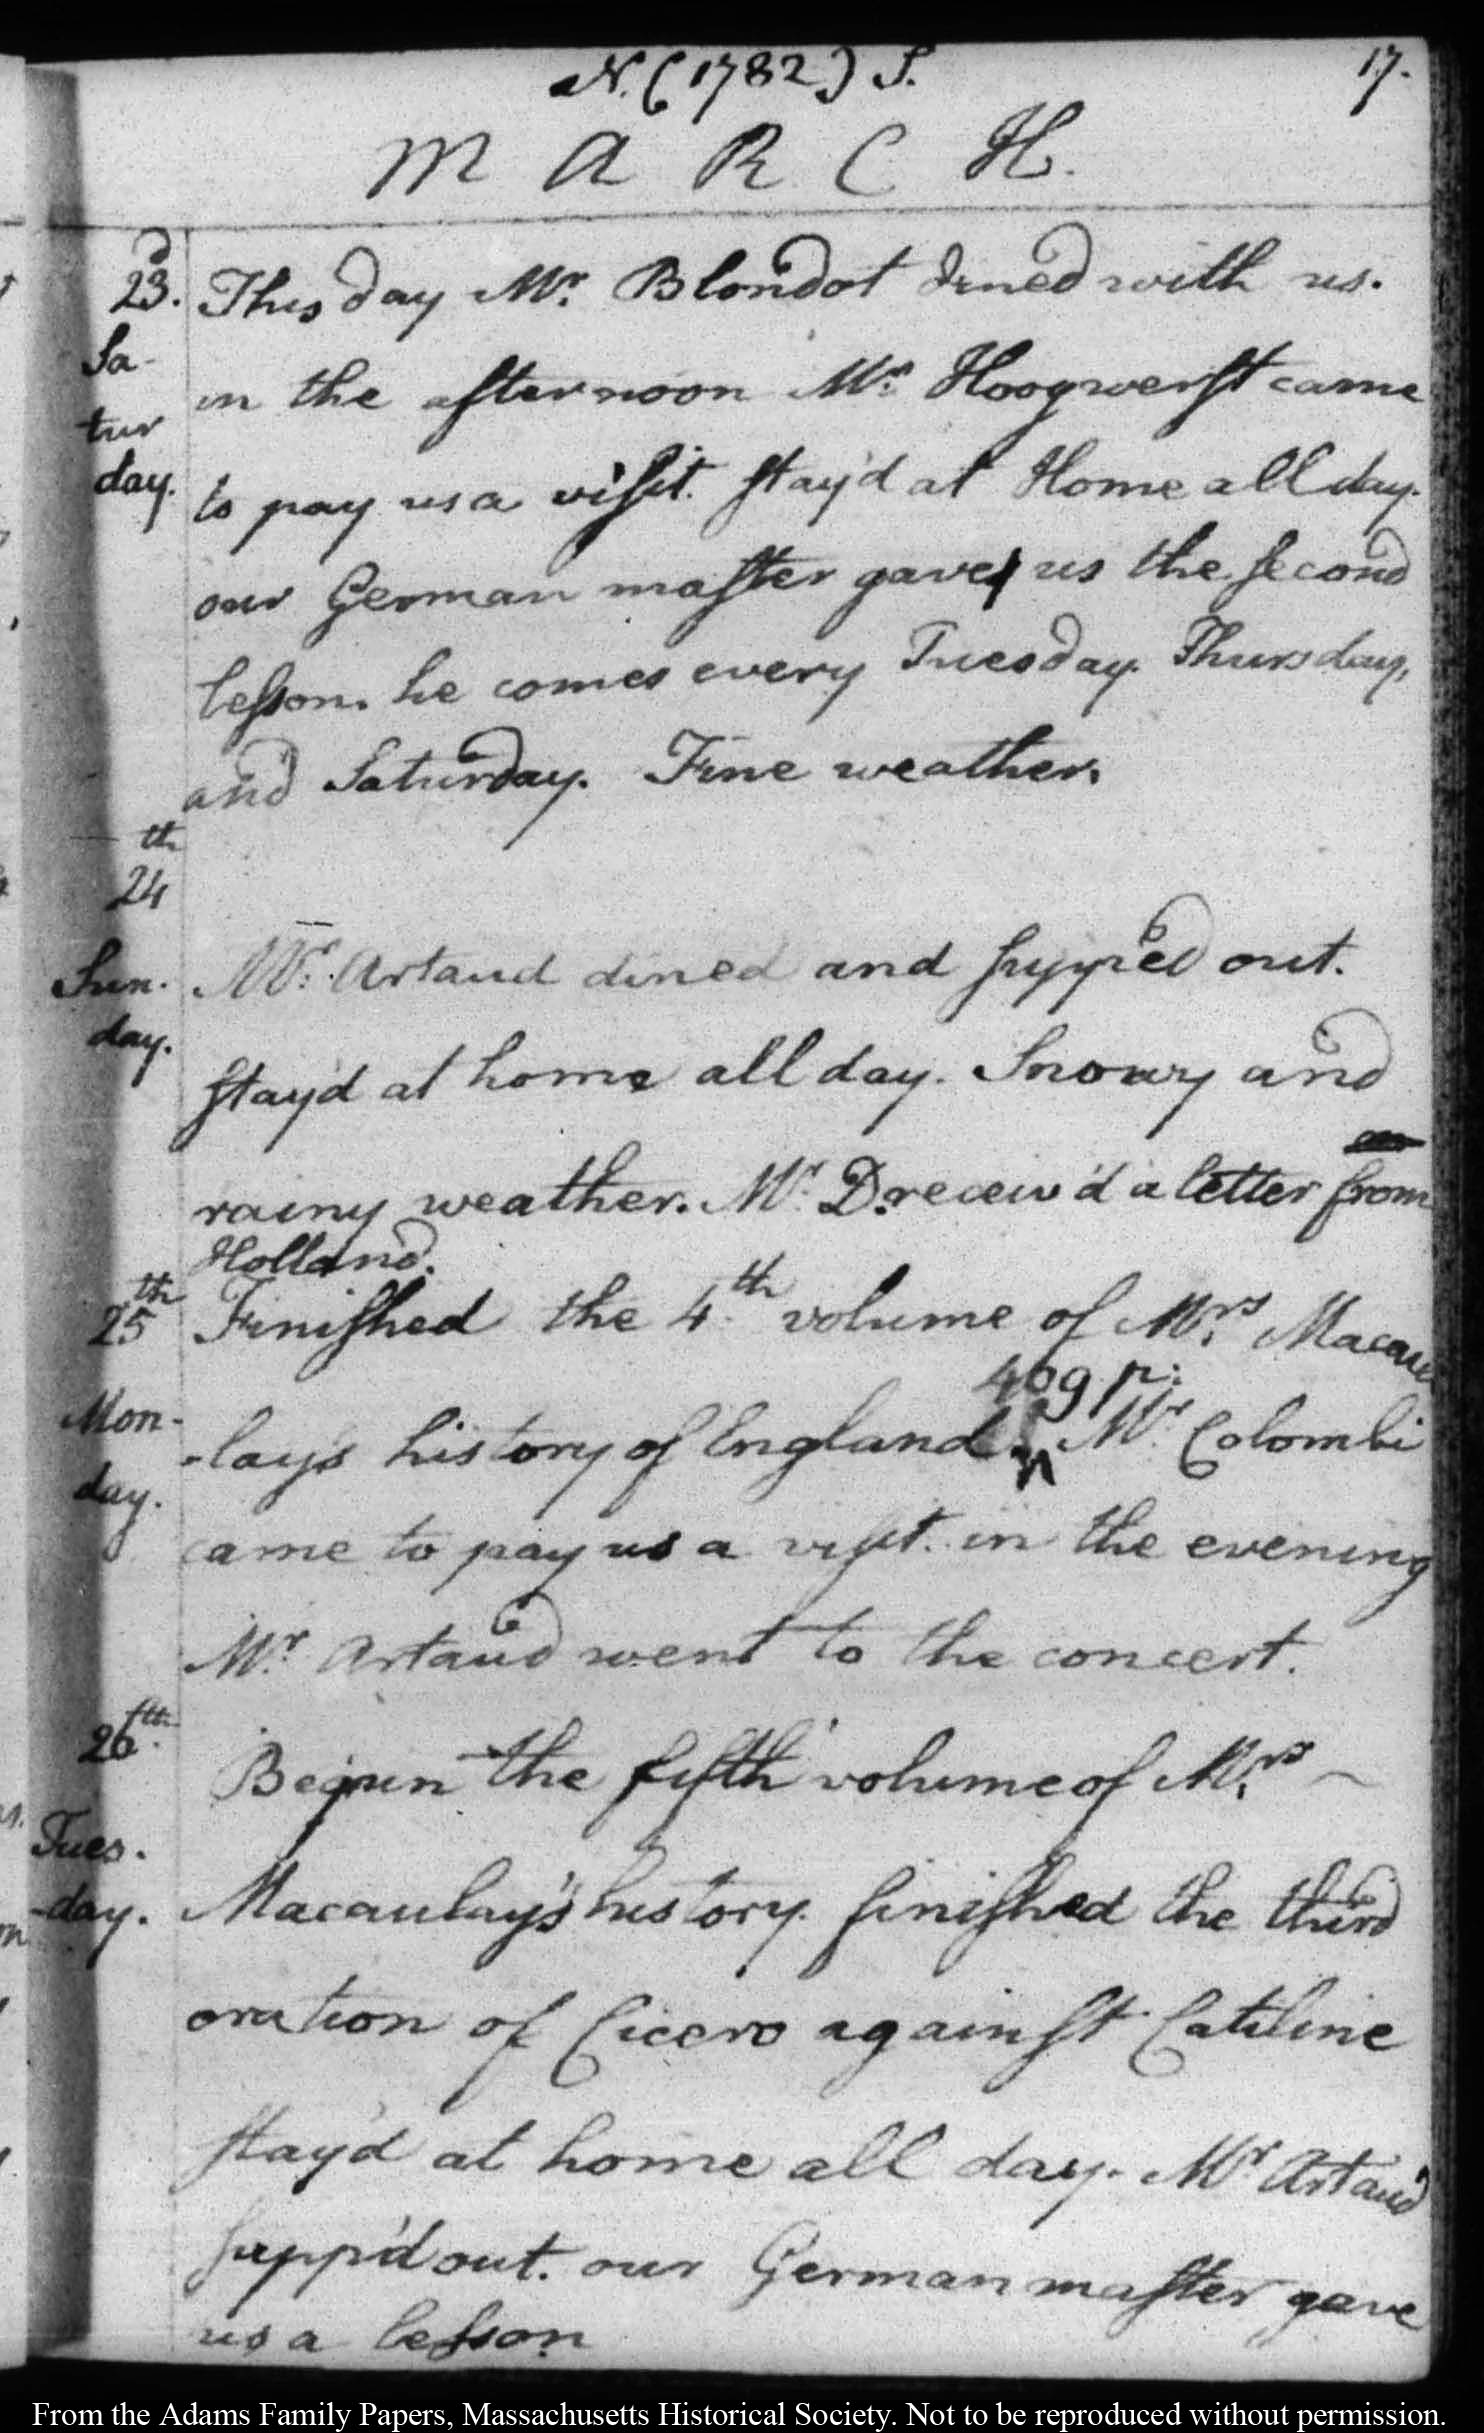 N. (1782) S.
17.
MARCH.
23.d
Sa-
tur
day.
This day Mr. Blondot dined with us.
in the afternoon Mrs. Hoogwerft came
to pay us a visit. stay'd at Home all day.
our German master gave us the second
lesson. he comes every Tuesday. Thursday,
and Saturday. Fine weather.
24th
Sun.
day.
Mr. Artaud dined and supped out.
stay'd at home all day. Snowy and
rainy weather. Mr. D. receiv'd a letter from
Holland.
25th
Mon-
day.
Finished the 4th. volume of Mrs. Macau
-lay's history of England. 409 p: Mr. Colombi
came to pay us a visit. in the evening
Mr. Artaud went to the concert.
26th.
Tues.
-day.
Begun the fifth volume of Mrs. ~
Macaulay's history. finished the third
oration of Cicero against Catiline
stay'd at home all day. Mr. Artaud
supp'd out. our German master gave
us a lesson
From the Adams Family Papers, Massachusetts Historical Society. Not to be reproduced without permission.